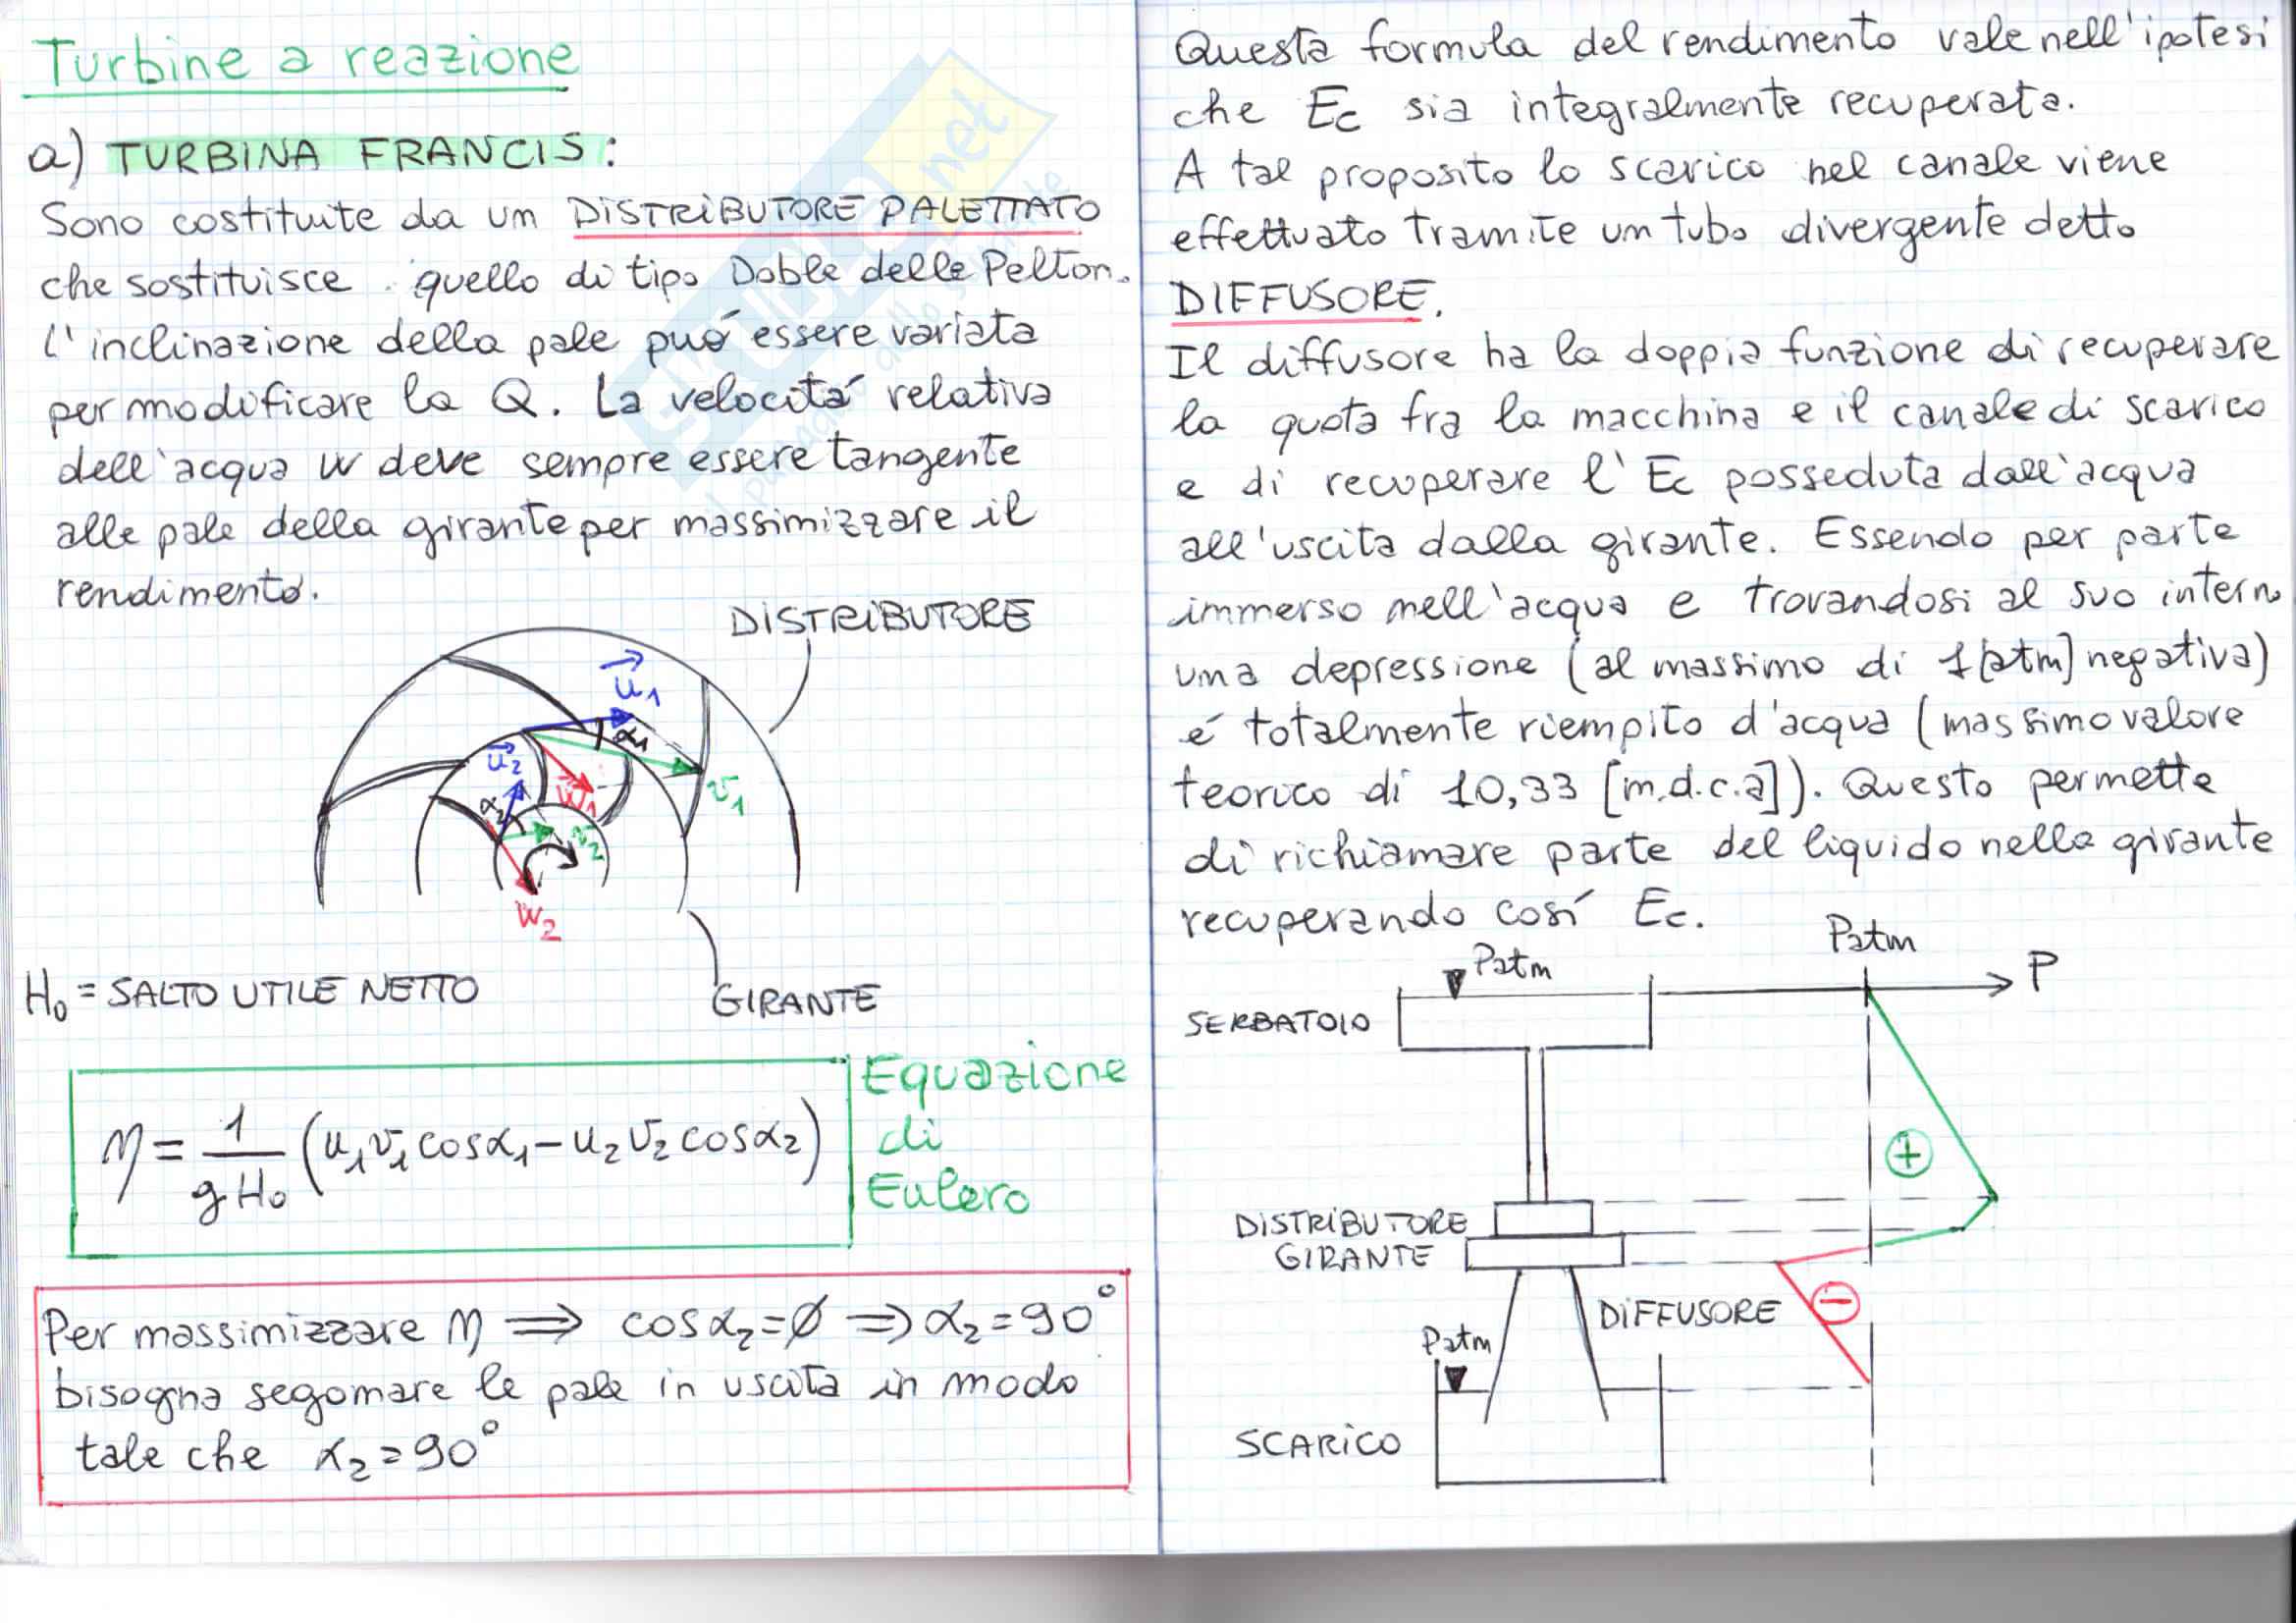 Turbine a reazione
a) TURBINA FRANCIS:
Sono costituite da un DISTRIBUTORE PALETTATO
che sostituisce quello di tipo Doble delle Pelton.
L'inclinazione della pale puó essere variata
per modificare la Q. La velocitá relativa
dell'acqua w deve sempre essere tangente
alle pale della girante per massimizzare il
rendimento.
DISTRIBUTORE
u1
α1
u2
α2
w1
v1
v2
w2
H0 = SALTO UTILE NETTO
GIRANTE
η = 1/gH0 (u1v1cosα1 - u2v2cosα2)
Equazione
di
Eulero
Per massimizzare η ⇒ cosα2=Ø ⇒ α2=90°
bisogna segomare le pale in uscita in modo
tale che α2=90°
Questa formula del rendimento vale nell'ipotesi
che Ec sia integralmente recuperata.
A tal proposito lo scarico nel canale viene
effettuato tramite un tubo divergente detto
DIFFUSORE.
Il diffusore ha la doppia funzione di recuperare
la quota fra la macchina e il canale di scarico
e di recuperare l'Ec posseduta dall'acqua
all'uscita dalla girante. Essendo per parte
immerso nell'acqua e trovandosi al suo interno
una depressione (al massimo di 1[atm] negativa)
é totalmente riempito d'acqua (massimo valore
teorico di 10,33 [m.d.c.a]). Questo permette
di richiamare parte del liquido nella girante
recuperando cosí Ec.
Patm
Patm
P
SERBATOIO
+
DISTRIBUTORE
GIRANTE
-
DIFFUSORE
Patm
SCARICO
SKUOLA.net